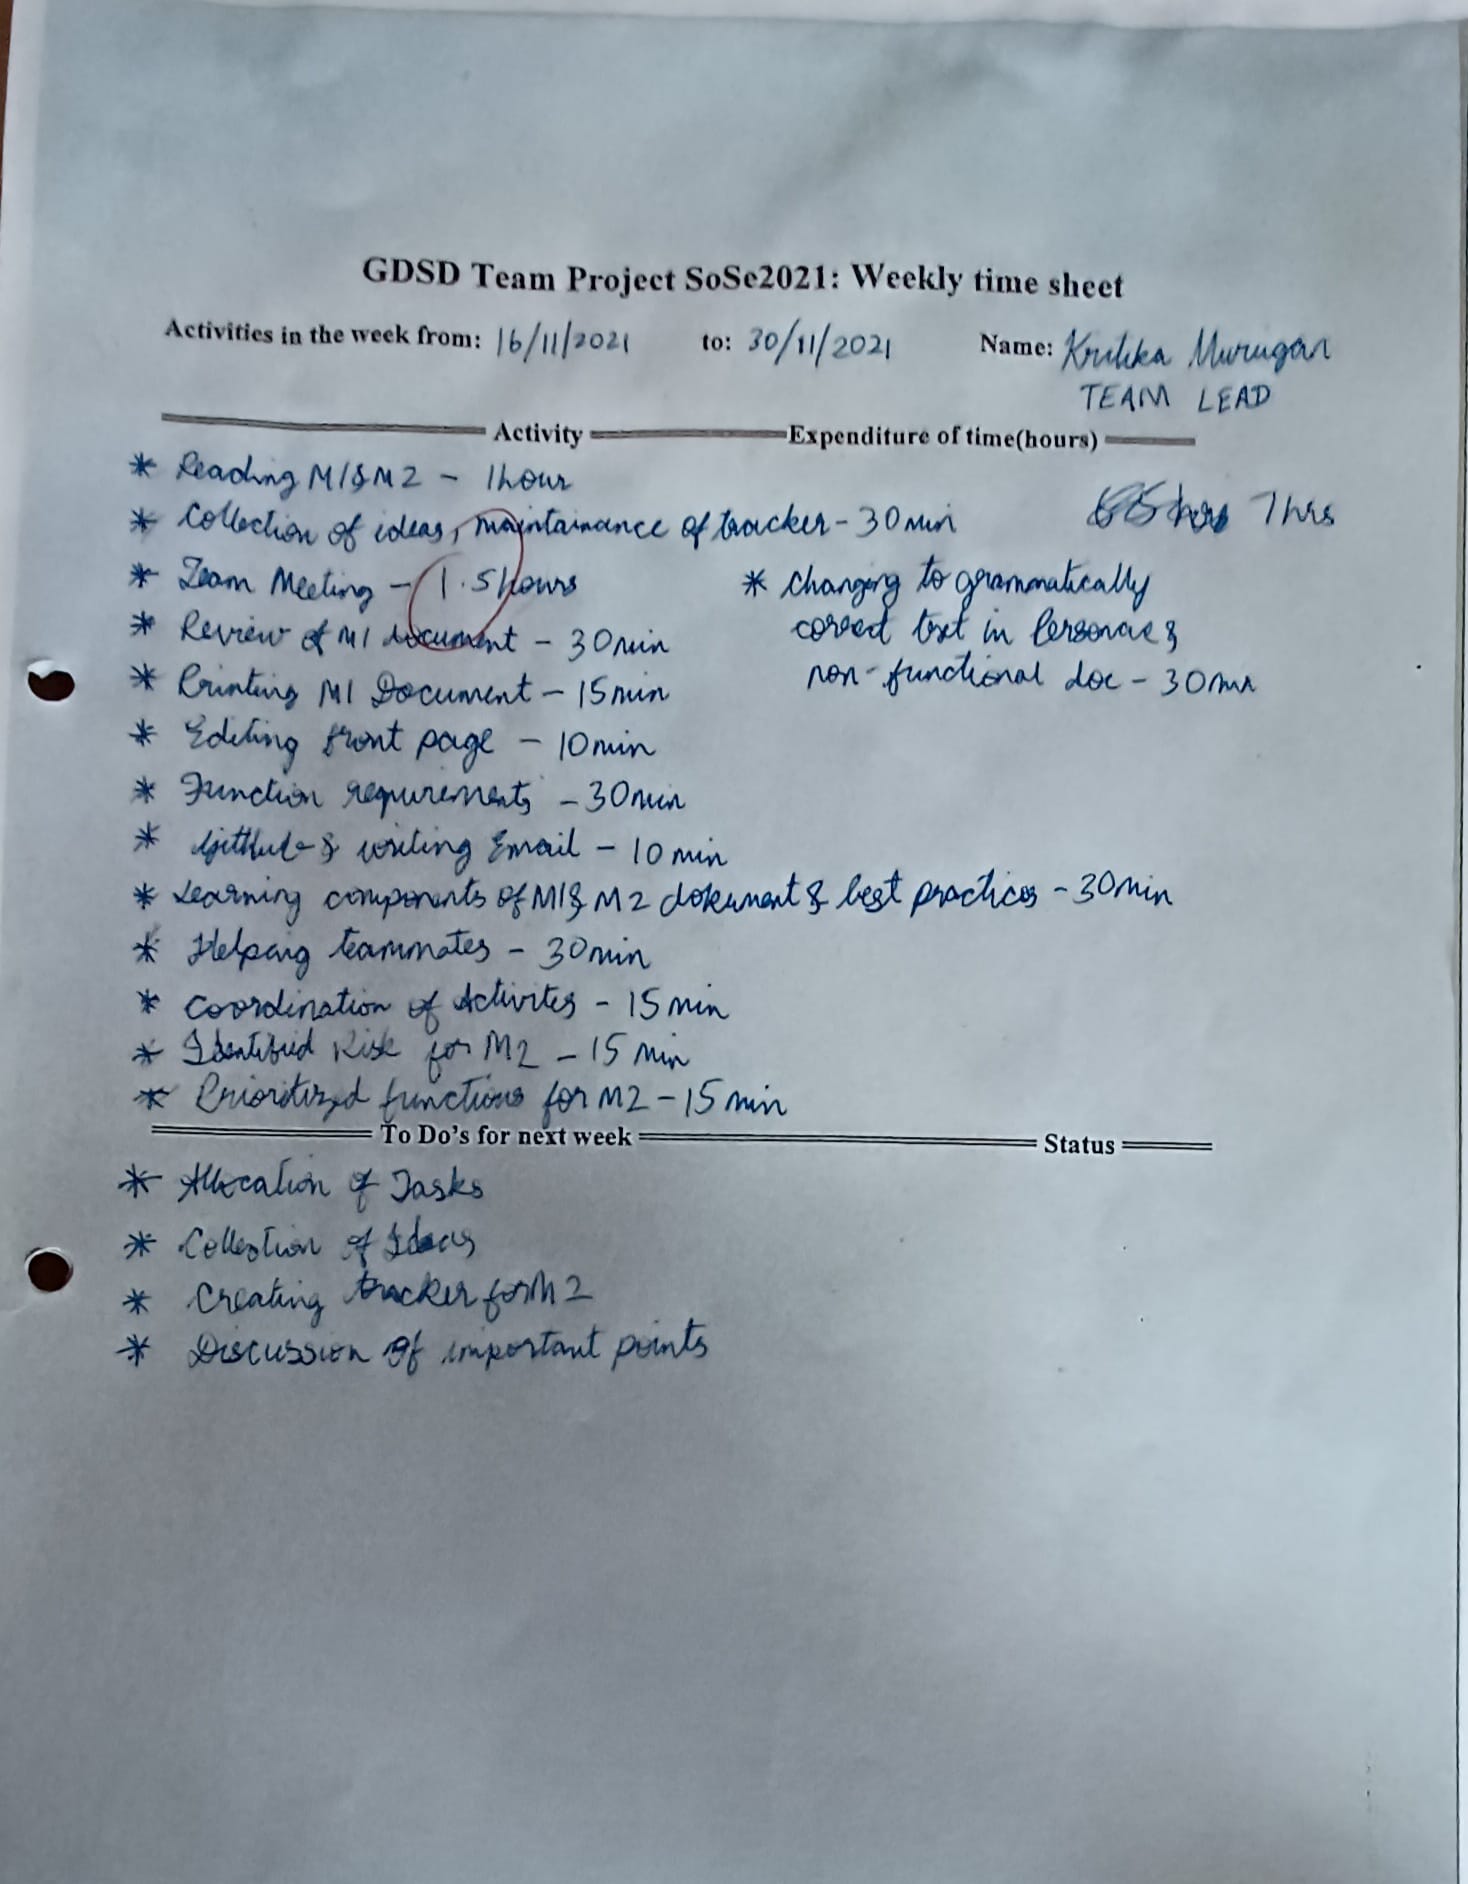 GDSD Team Project SoSe2021: Weekly time sheet
Activities in the week from: 16/11/2021 to: 30/11/2021 Name: Kritika Murugan
TEAM LEAD
Activity Expenditure of time(hours)
* Reading M1 & M2 - 1hour
7 hrs
* Collection of ideas, maintainance of tracker - 30 min
* Team Meeting - 1.5 hours
* Review of M1 document - 30 min
* Printing M1 Document - 15 min
* Editing front page - 10 min
* Function requirements - 30 min
* & writing Email - 10 min
* Learning components of M1 & M2 dokument & best practices - 30 min
* Helping teammates - 30 min
* Coordination of Activites - 15 min
* Identified Risk for M2 - 15 min
* Prioritized functions for M2 - 15 min
* Changing to grammatically
correct text in Personae &
non-functional doc - 30 min
To Do's for next week Status
* Allocation of Tasks
* Collection of Ideas
* Creating tracker for M2
* Discussion of important points